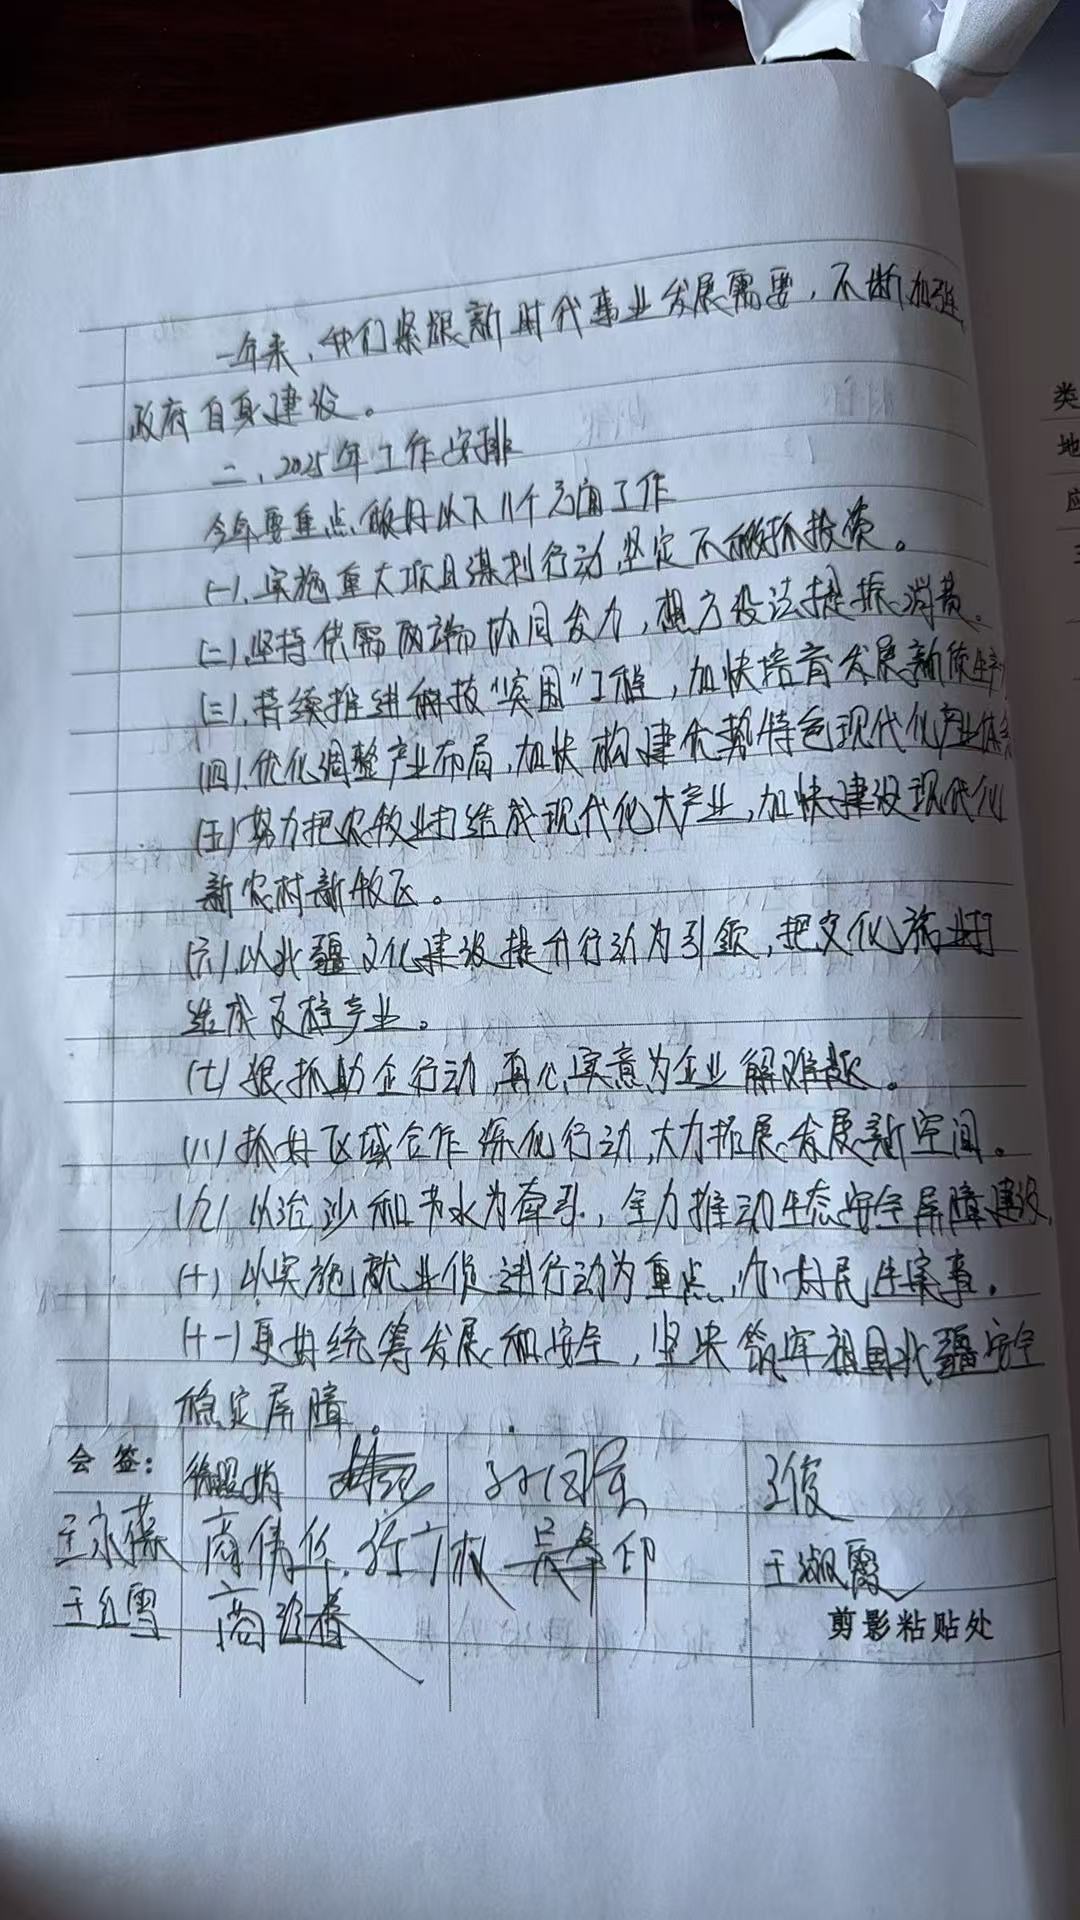 一年来，我们紧跟新时代事业发展需要，不断加强
政府自身建设。
二、2025年工作安排
今年要重点做好以下11个方面工作
(一)、实施重大项目谋划行动，坚定不移抓投资。
(二)、坚持供需两端协同发力，想方设法提振消费。
(三)、持续推进科技“突围”工程，加快培育发展新质生产
(四)、优化调整产业布局，加快构建优势特色现代化产业体系
(五)努力把农牧业打结成现代化大产业，加快建设现代化
新农村新牧区。
(六)、以北疆文化建设提升行动为引领，把文化旅业打
结成支柱产业。
(七)狠抓助企行动，真心实意为企业解难题。
(八)抓好区域合作深化行动，大力拓展发展新空间。
(九)以治沙和节水为牵引，全力推动生态安全屏障建设，
(十)以实施就业促进行动为重点，办好民生实事。
(十一)更好统筹发展和安全，坚决筑牢祖国北疆安全
稳定屏障。
会 签：
王俊
王永
商伟
王淑霞
王红雪
剪影粘贴处
类
地
应